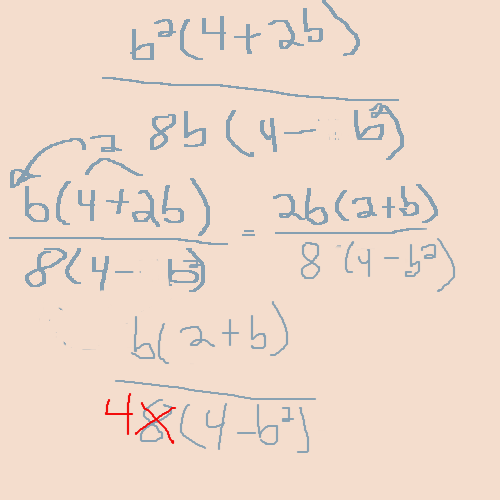 b²(4+2b)
8b(4-b²)
2
b(4+2b) = 2b(2+b)
8(4-b²) 8(4-b²)
b(2+b)
4 8(4-b²)